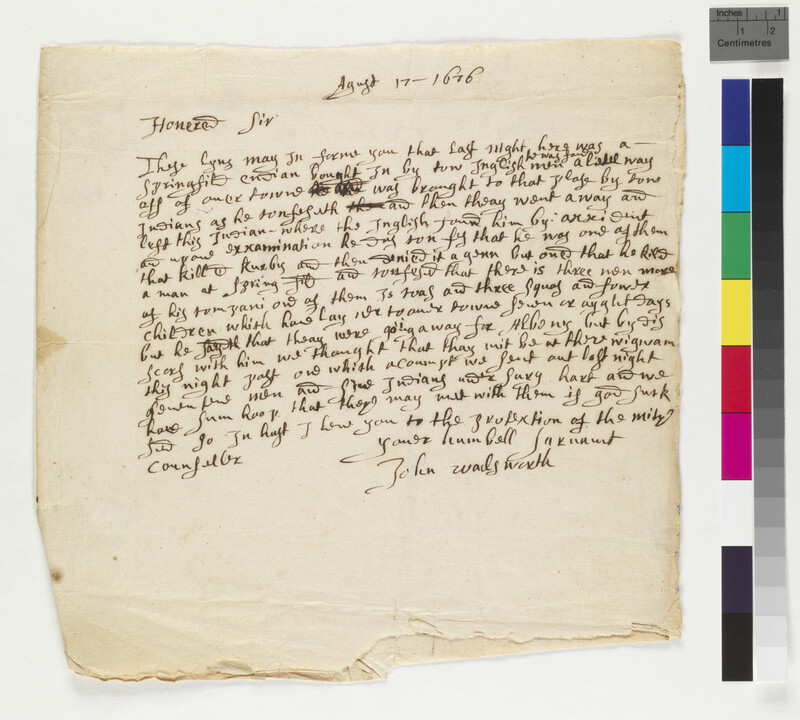 Agust 17 - 1676
Honered Sir
These lyns may In forme you that last night here was a
Springfild endian bought In by tow Inglish men he was found a letell way
off of ouer towne was brought to that plase by tow
Indians as he confeseth and then theay went away and
left this Indian where the Inglish found him by: axident
and upone exxamination he did confes that he was one of them
that killed kurbys and then denied it agenn but oned that he kild
a man at Spring fild and confesed that there is three men more
of his company one of them Is and three squas and fower
children which have lay ner to ouer towne seven or ayght days
but he sayth that theay were going away for Albeny but by dis
Scors with him we thought that thay mit be at there wigwam
this night past one which acoumpt we sent out last night
men and Indians under sarg hart and we
have sum hoop that they may met with them if god suck
sed so In hast I leve you to the protextion of the mity
Counseller
youer humbell sarvant
John wadsworth
Inches 1
1 2
Centimetres